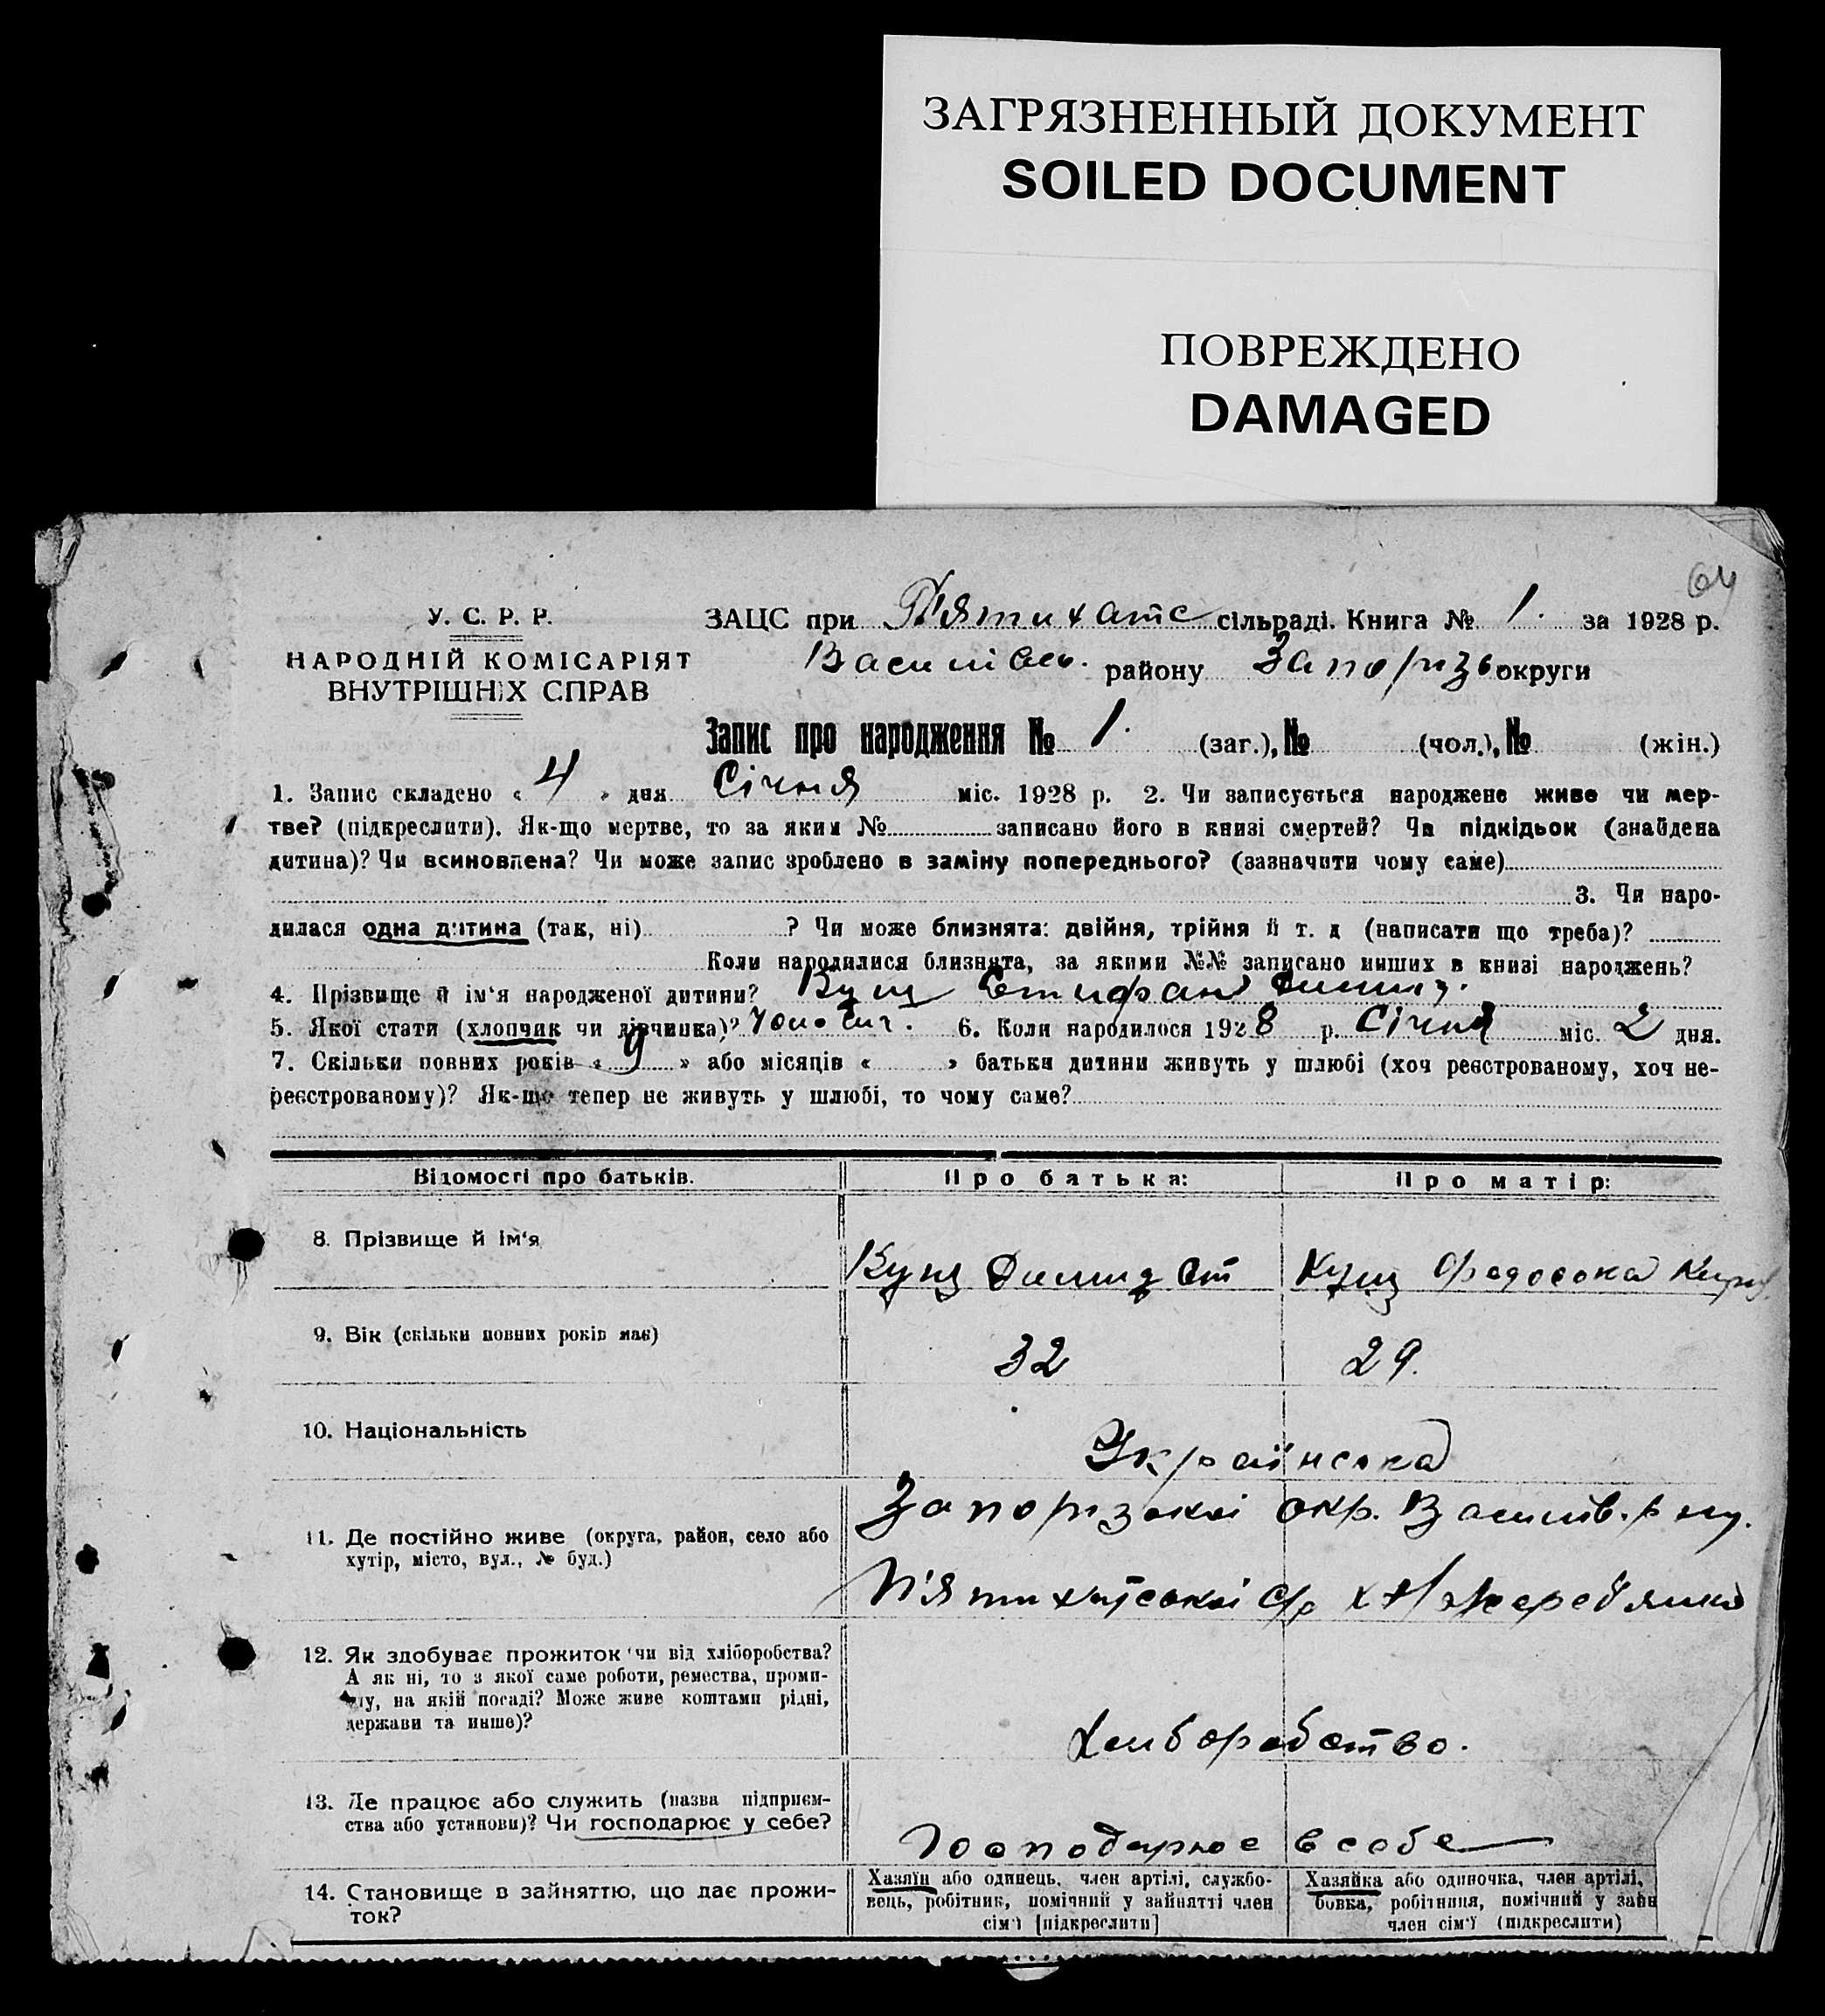 ЗАГРЯЗНЕННЫЙ ДОКУМЕНТ
SOILED DOCUMENT
ПОВРЕЖДЕНО
DAMAGED
64
У. С. Р. Р.
НАРОДНІЙ КОМІСАРІЯТ
ВНУТРІШНІХ СПРАВ
ЗАЦС при П'ятихатс сільраді. Книга № 1. за 1928 р.
Василівсь. району Запорізь округи
Запис про народження № 1. (заг.), № (чол.), № (жін.)
1. Запис складено « 4 » дня Січня міс. 1928 р. 2. Чи записується народжене живе чи мер-
тве? (підкреслити). Як-що мертве, то за яким № записано його в книзі смертей? Чи підкідьок (знайдена
дитина)? Чи всиновлена? Чи може запис зроблено в заміну попереднього? (зазначити чому саме)
3. Чи наро-
дилася одна дитина (так, ні) ? Чи може близнята: двійня, трійня й т. д (написати що треба)?
Коли народилися близнята, за якими №№ записано инших в книзі народжень?
4. Прізвище й ім'я народженої дитини? Кущ Стифан
5. Якої стати (хлопчик чи дівчинка)? 6. Коли народилося 1928 р. Січня міс. 2 дня.
7. Скільки повних років « 9 » або місяців « » батьки дитини живуть у шлюбі (хоч реєстрованому, хоч не-
реєстрованому)? Як-що тепер не живуть у шлюбі, то чому саме?
Відомості про батьків. Про батька: Про матір:
8. Прізвище й ім'я
Кущ Ст Кущ Федоська
9. Вік (скільки повних років має)
32 29.
10. Національність
Українська
Запорізької окр. Василів. р ну.
11. Де постійно живе (округа, район, село або
хутір, місто, вул., № буд.)
П'ятихатської с/р
12. Як здобуває прожиток чи від хліборобства?
А як ні, то з якої саме роботи, ремества, проми-
слу, на якій посаді? Може живе коштами рідні,
держави та инше)?
Хлиборобство.
13. Де працює або служить (назва підприєм-
ства або установи)? Чи господарює у себе?
Господарює в себе
14. Становище в зайняттю, що дає прожи-
ток?
Хазяїн або одинець, член артілі, службо-
вець, робітник, помічний у зайнятті член
сім'ї [підкреслити]
Хазяйка або одиночка, член артілі,
бовка, робітниця, помічний у зайн
член сім'ї (підкреслити)